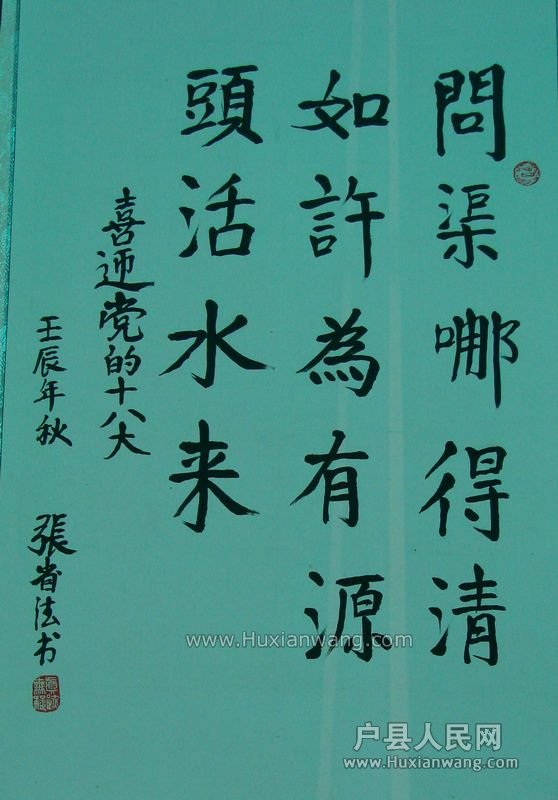 問渠哪得清
如許為有源
頭活水来
喜迎党的十八大
壬辰年秋 張省法书
www.Huxianwang.com
户县人民网
www.Huxianwang.com